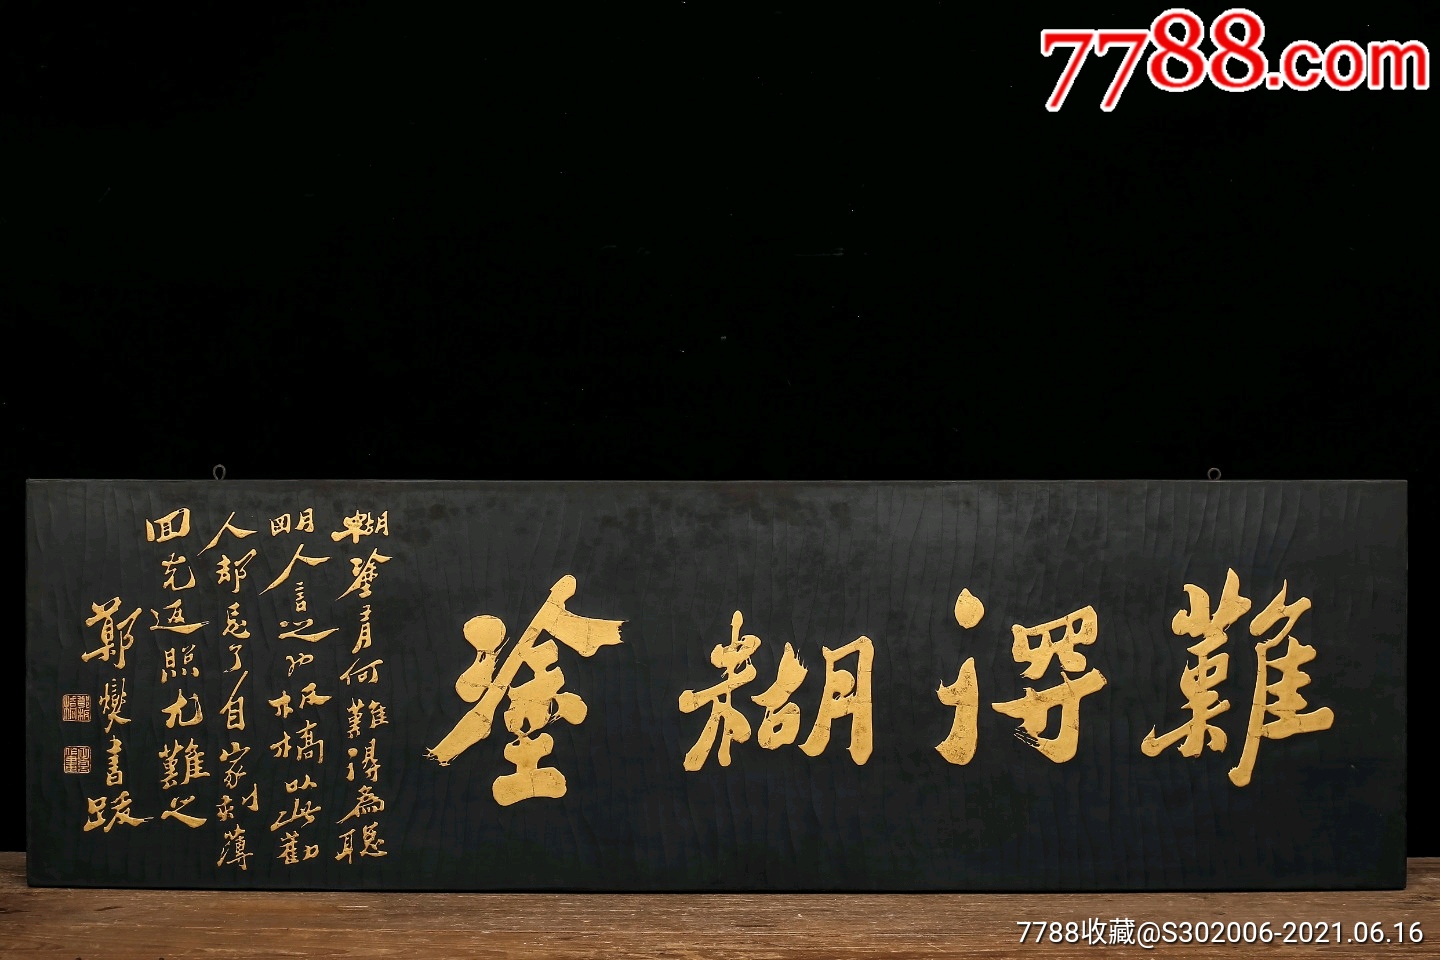 7788.com
難得糊塗
糊塗有何難得為聰
明人言之板橋以此勸
人却忘了自家刻薄
回光返照尤難之
鄭燮書跋
7788收藏@S302006-2021.06.16